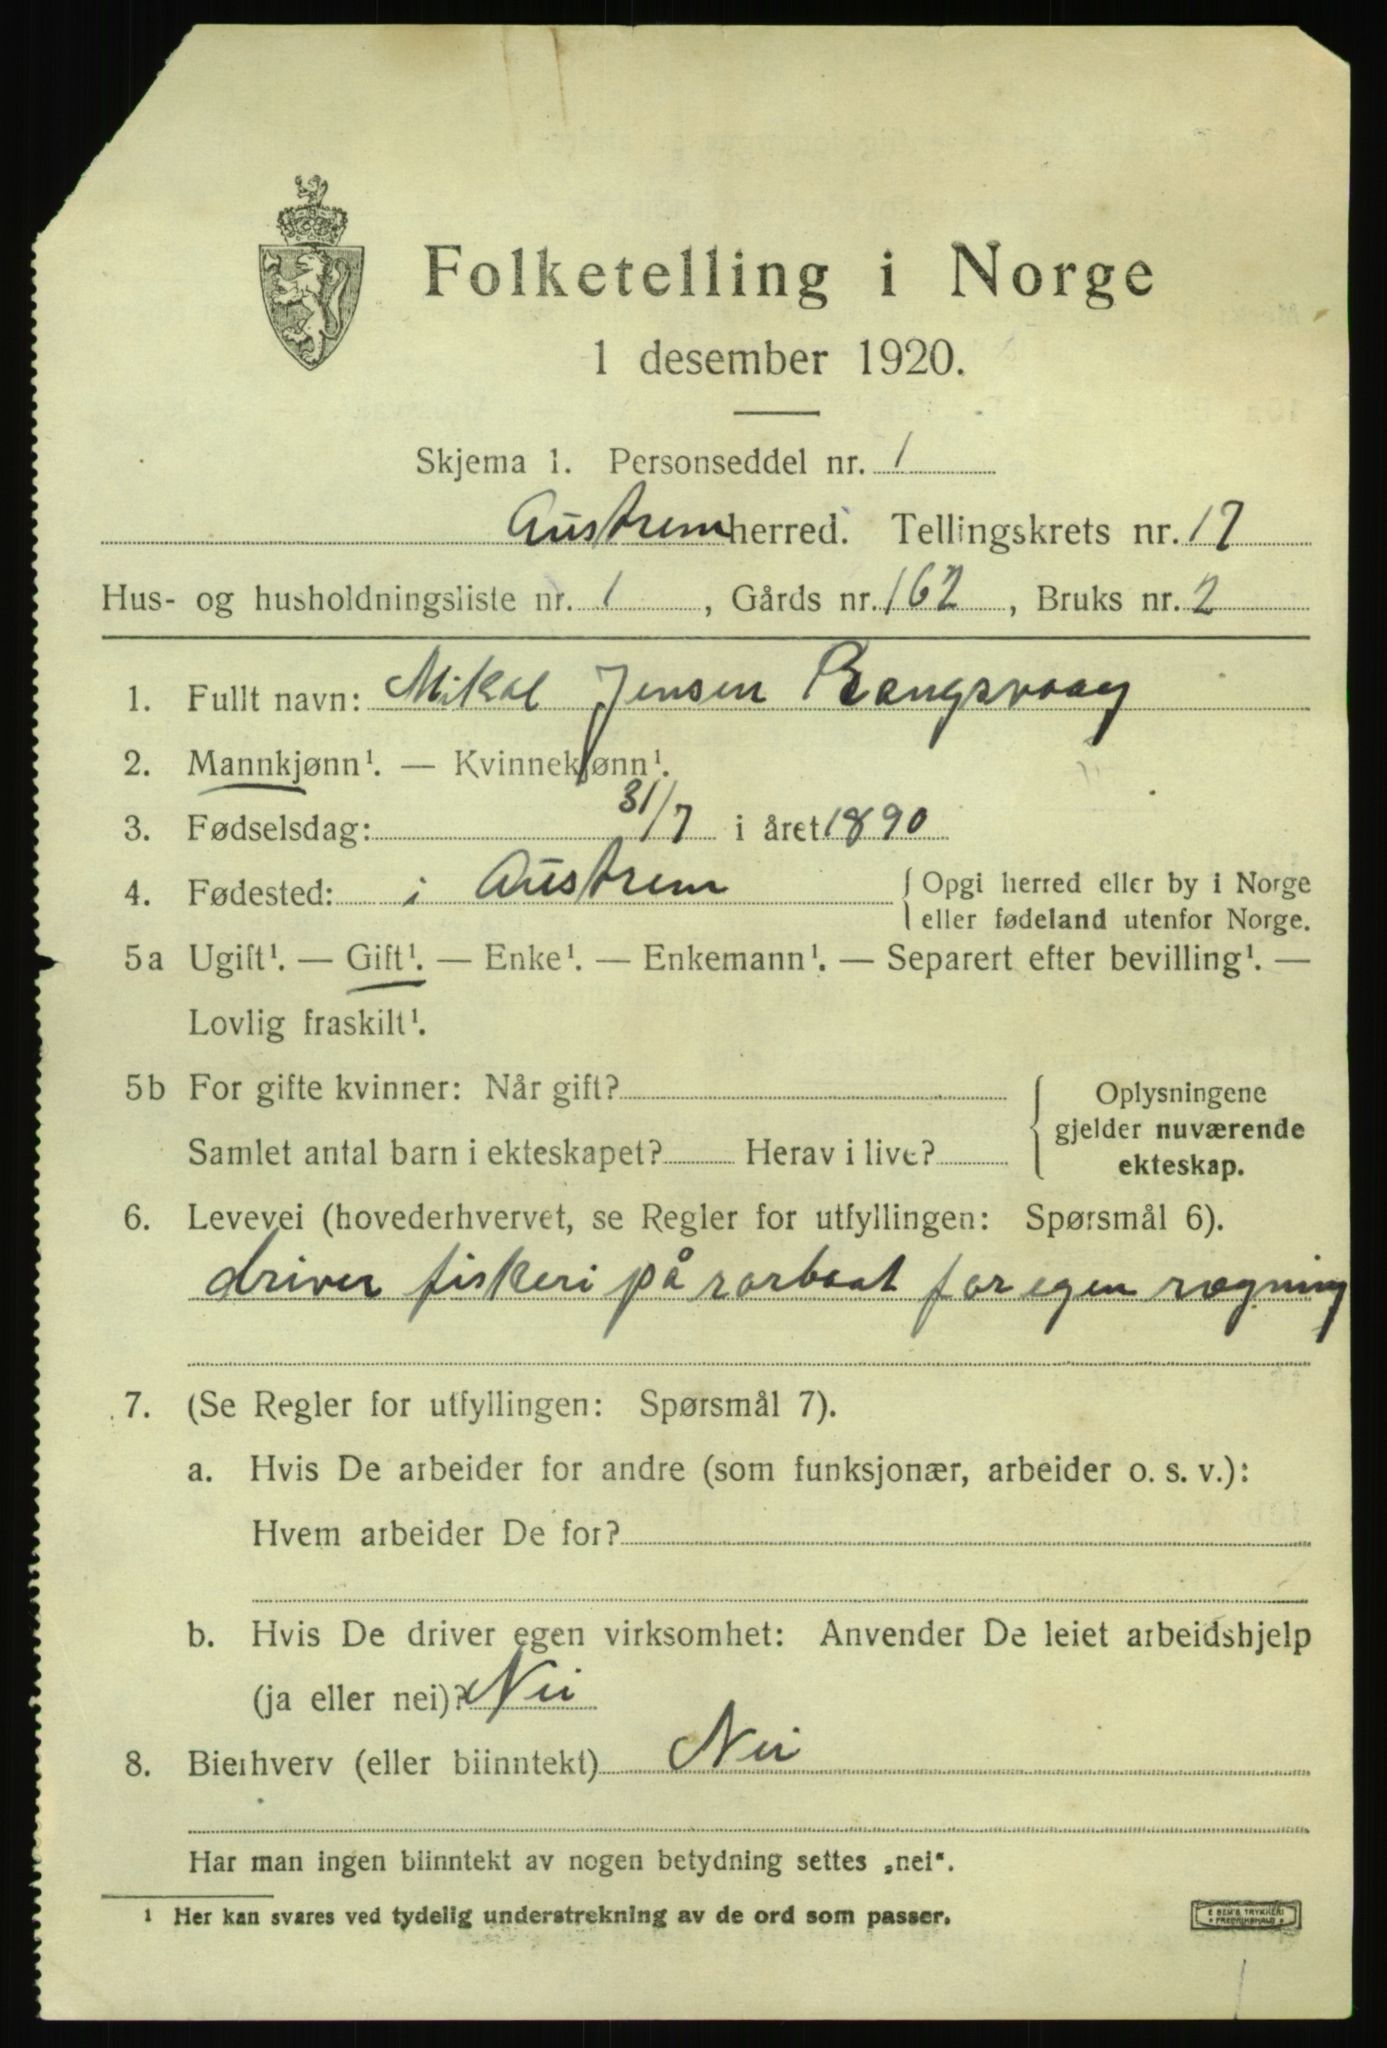 Folketelling i Norge
1 desember 1920.
Skjema 1. Personseddel nr. 1
Austrem herred. Tellingskrets nr. 17
Hus- og husholdningsliste nr. 1, Gårds nr. 162, Bruks nr. 2
1. Fullt navn: Mikal Jensen Rangsvaag
2. Mannkjønn¹. — Kvinnekjønn¹.
3. Fødselsdag: 31/7 i året 1890
4. Fødested: i Austrem { Opgi herred eller by i Norge
eller fødeland utenfor Norge.
5a Ugift¹. — Gift¹. — Enke¹. — Enkemann¹. — Separert efter bevilling¹. —
Lovlig fraskilt¹.
5b For gifte kvinner: Når gift?
Samlet antal barn i ekteskapet? Herav i live?
{ Oplysningene
gjelder nuværende
ekteskap.
6. Levevei (hovederhvervet, se Regler for utfyllingen: Spørsmål 6).
driver fiskeri på rorbaat for egen rægning
7. (Se Regler for utfyllingen: Spørsmål 7).
a. Hvis De arbeider for andre (som funksjonær, arbeider o. s. v.):
Hvem arbeider De for?
b. Hvis De driver egen virksomhet: Anvender De leiet arbeidshjelp
(ja eller nei)? Nei
8. Bierhverv (eller biinntekt) Nei
Har man ingen biinntekt av nogen betydning settes „nei“.
¹ Her kan svares ved tydelig understrekning av de ord som passer.
E SEM'S TRYKKERI
FREDRIKSHALD